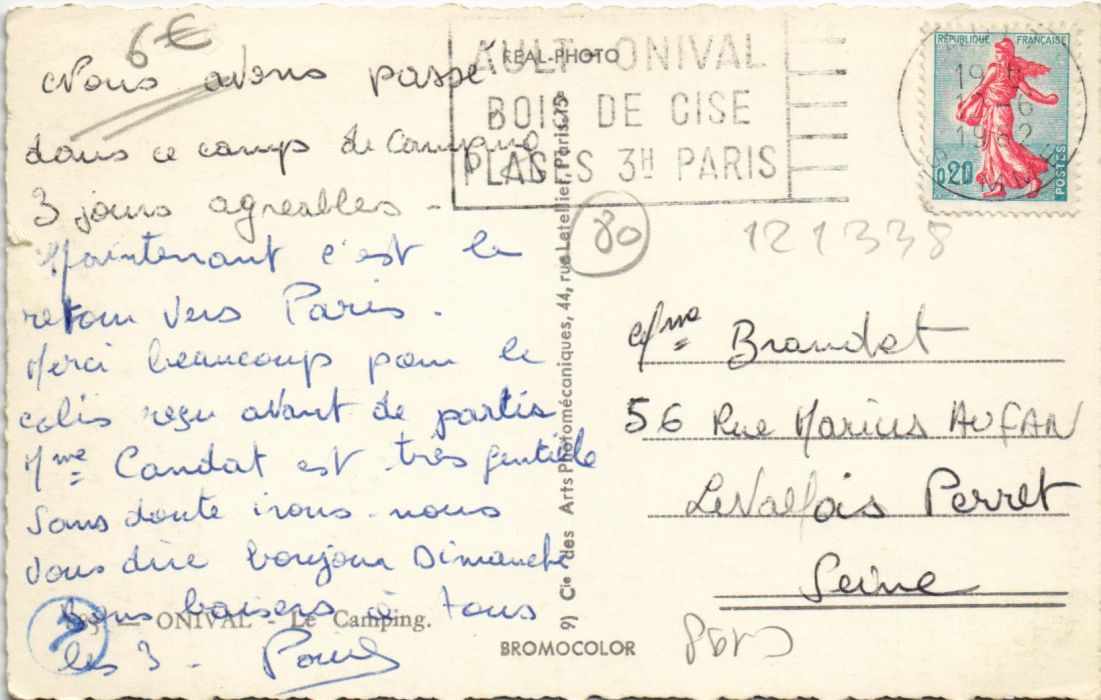 6€
Nous avons passé
dans ce camp de Camping
3 jours agréables -
Maintenant c'est le
retour vers Paris.
Merci beaucoup pour le
colis reçu avant de partir
Mme Candat est très gentille
Sans doute irons-nous
vous dire bonjour Dimanche
Bons baisers à tous
les 3 -
— ONIVAL - Le Camping.
REAL-PHOTO
9) Cie des Arts Photomécaniques, 44, rue Letellier, Paris-15e
BROMOCOLOR
AULT ONIVAL
BOIS DE CISE
PLAGES 3H PARIS
80
RÉPUBLIQUE FRANÇAISE
0,20
POSTES
19 H
1962
SOMME
121338
Mme Brandat
56 Rue Marius AUFAN
Levallois Perret
Seine